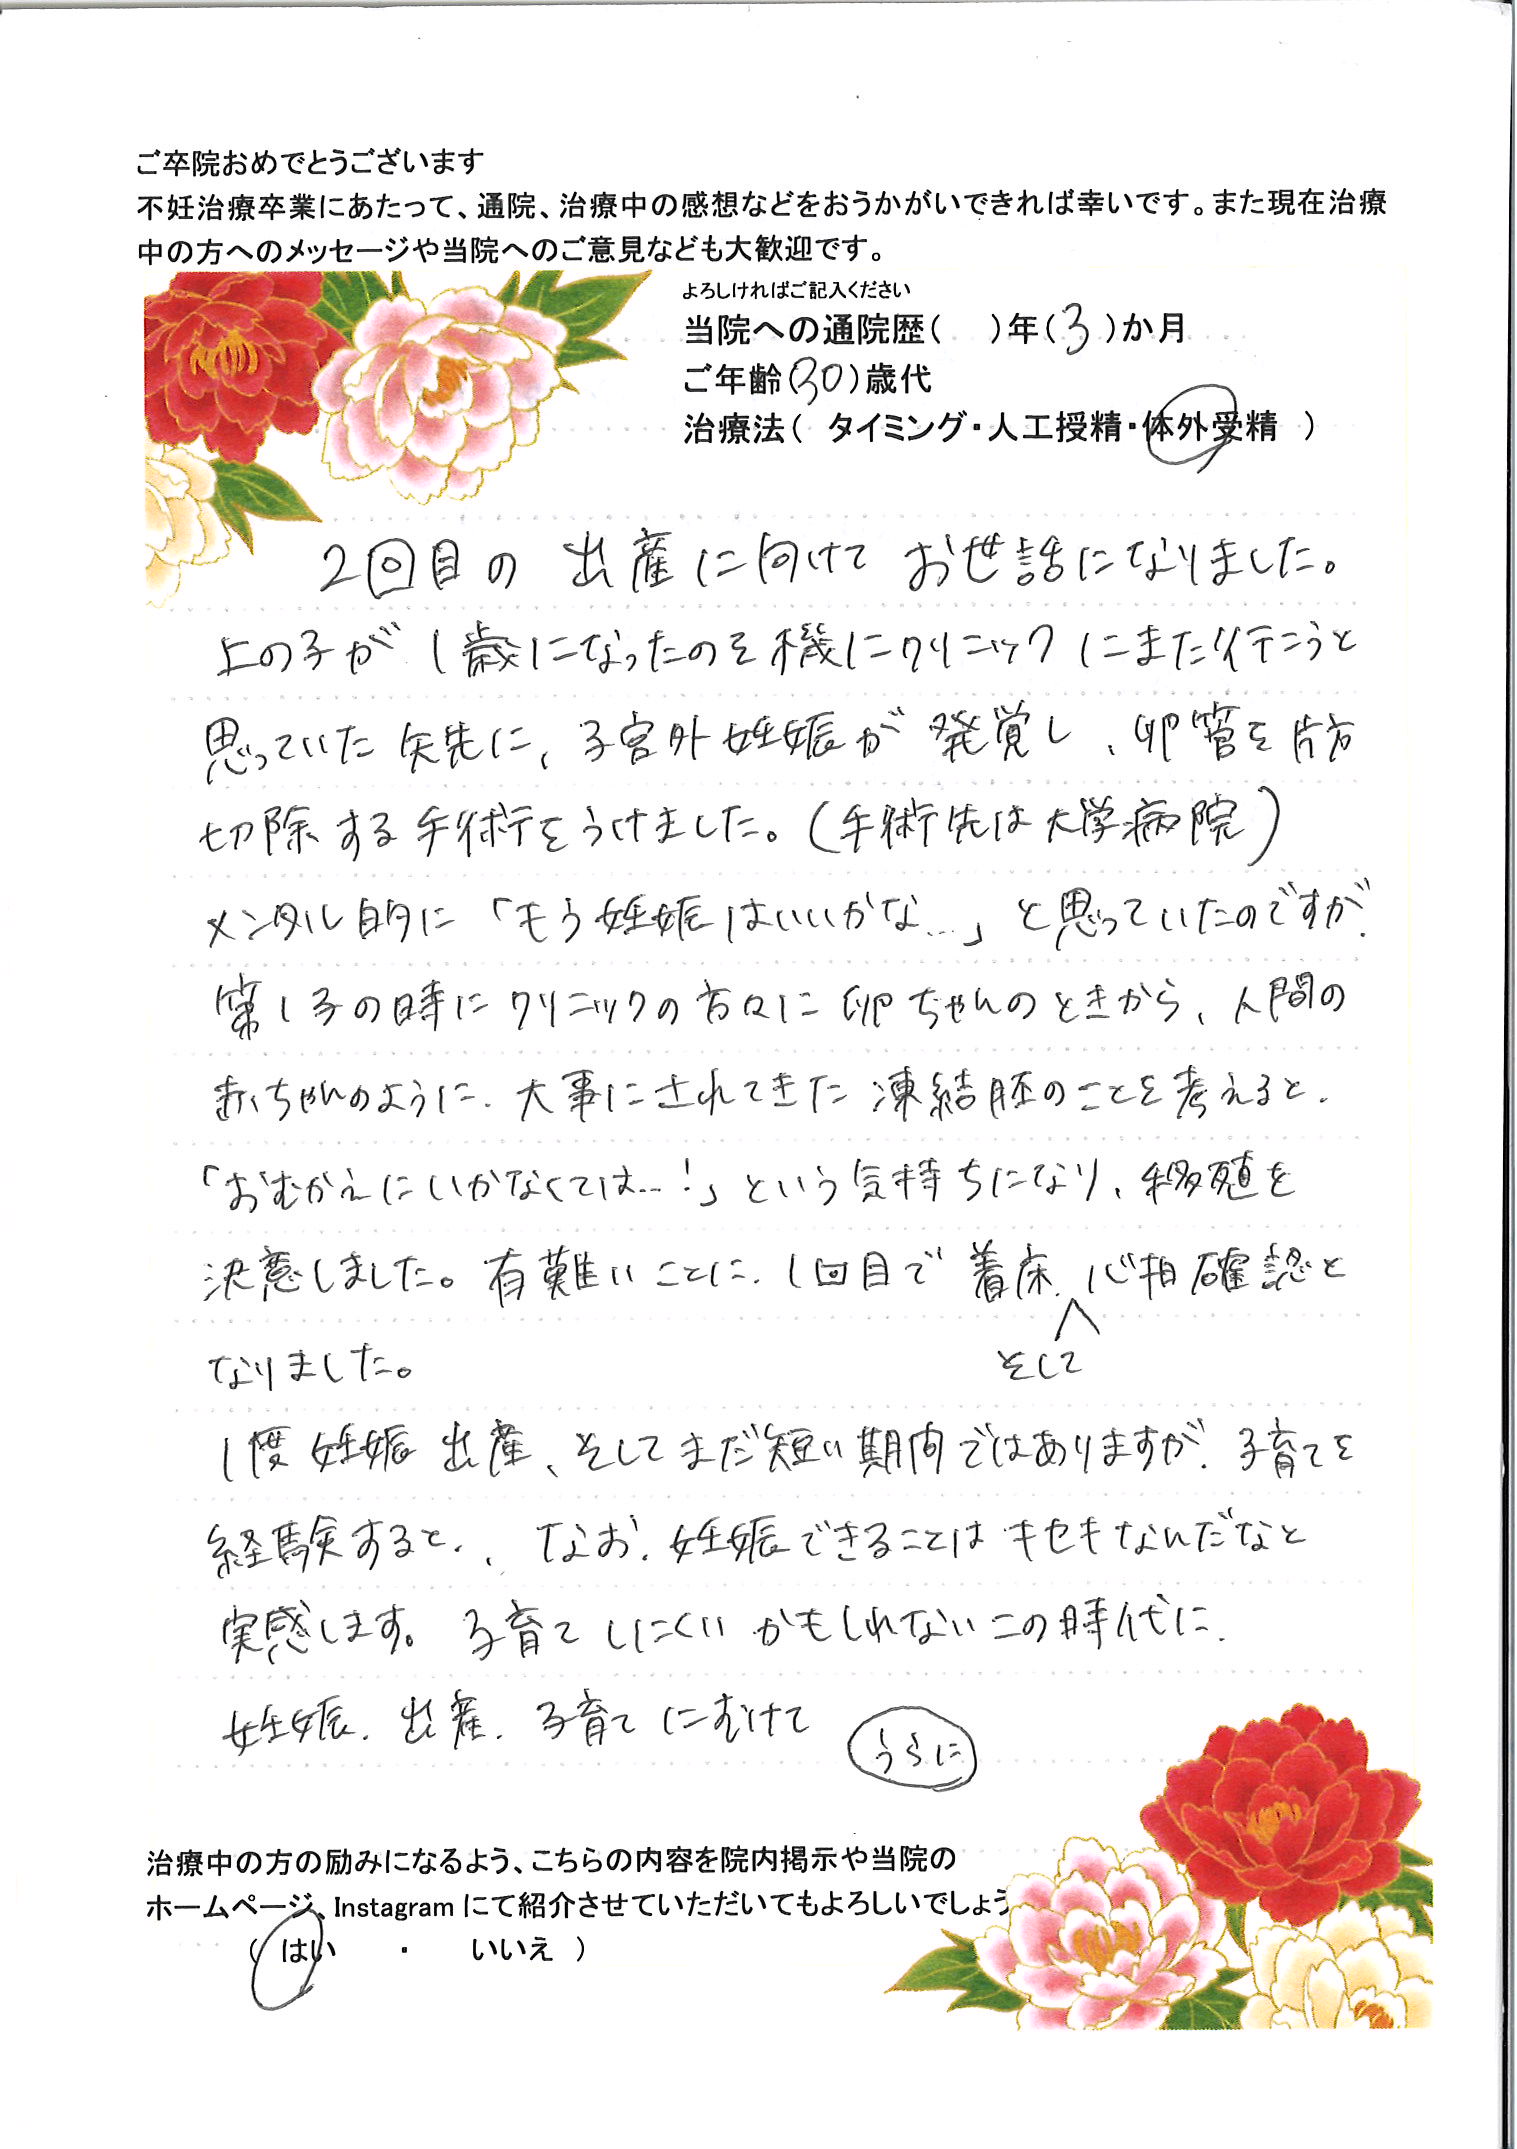 ご卒院おめでとうございます
不妊治療卒業にあたって、通院、治療中の感想などをおうかがいできれば幸いです。また現在治療
中の方へのメッセージや当院へのご意見なども大歓迎です。
よろしければご記入ください
当院への通院歴(　)年(3)か月
ご年齢(30)歳代
治療法( タイミング・人工授精・体外受精 )
2回目の出産に向けてお世話になりました。
上の子が1歳になったのを機にクリニックにまた行こうと
思っていた矢先に、子宮外妊娠が発覚し、卵管を片方
切除する手術をうけました。(手術先は大学病院)
メンタル的に「もう妊娠はいいかな…」と思っていたのですが、
第1子の時にクリニックの方々に卵ちゃんのときから、人間の
赤ちゃんのように、大事にされてきた凍結胚のことを考えると、
「おむかえにいかなくては…!」という気持ちになり、移殖を
決意しました。有難いことに、1回目で着床、心拍確認と
そして
なりました。
1度妊娠出産、そしてまだ短い期間ではありますが、子育てを
経験すると、、なお、妊娠できることはキセキなんだなと
実感します。子育てしにくいかもしれないこの時代に、
妊娠、出産、子育てにむけて
うらに
治療中の方の励みになるよう、こちらの内容を院内掲示や当院の
ホームページ、Instagramにて紹介させていただいてもよろしいでしょう
( はい ・ いいえ )